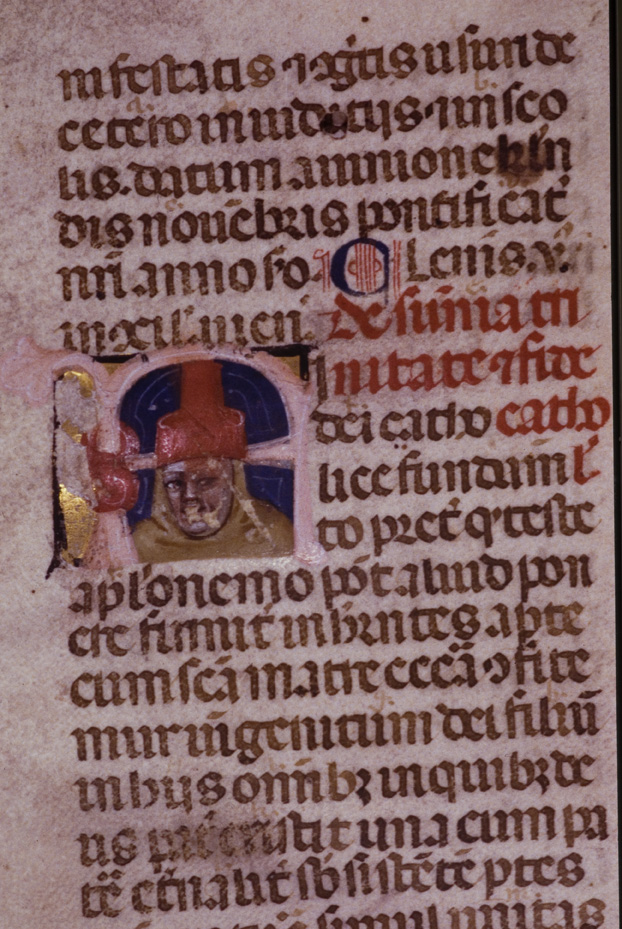 nifestatis ⁊ ag̃tis usuri de
cetero in iudicijs ⁊ in sco
lis. datum auinione kłn
dis nouẽbris pontificat᷒
nr̃i anno s̃o. Clemẽs.v.
in ɔcil. uieñ. De sum̃a tri
nitate ⁊ fide
dei catho catho
lice fundam̃ l᷒
to pret̃ q᷒ teste
ap̃lo nemo põt aliud pon
ere firmit̃ inhrentes apte
cum sc̃a matre ecc̃a ɔfite
mur unigenitum dei filiũ
in hijs om̃ibꝫ in quibꝫ de
us pater existit una cum pa
tre et̃nalit̃ sb̃sistẽtẽ ptes
simul unitas